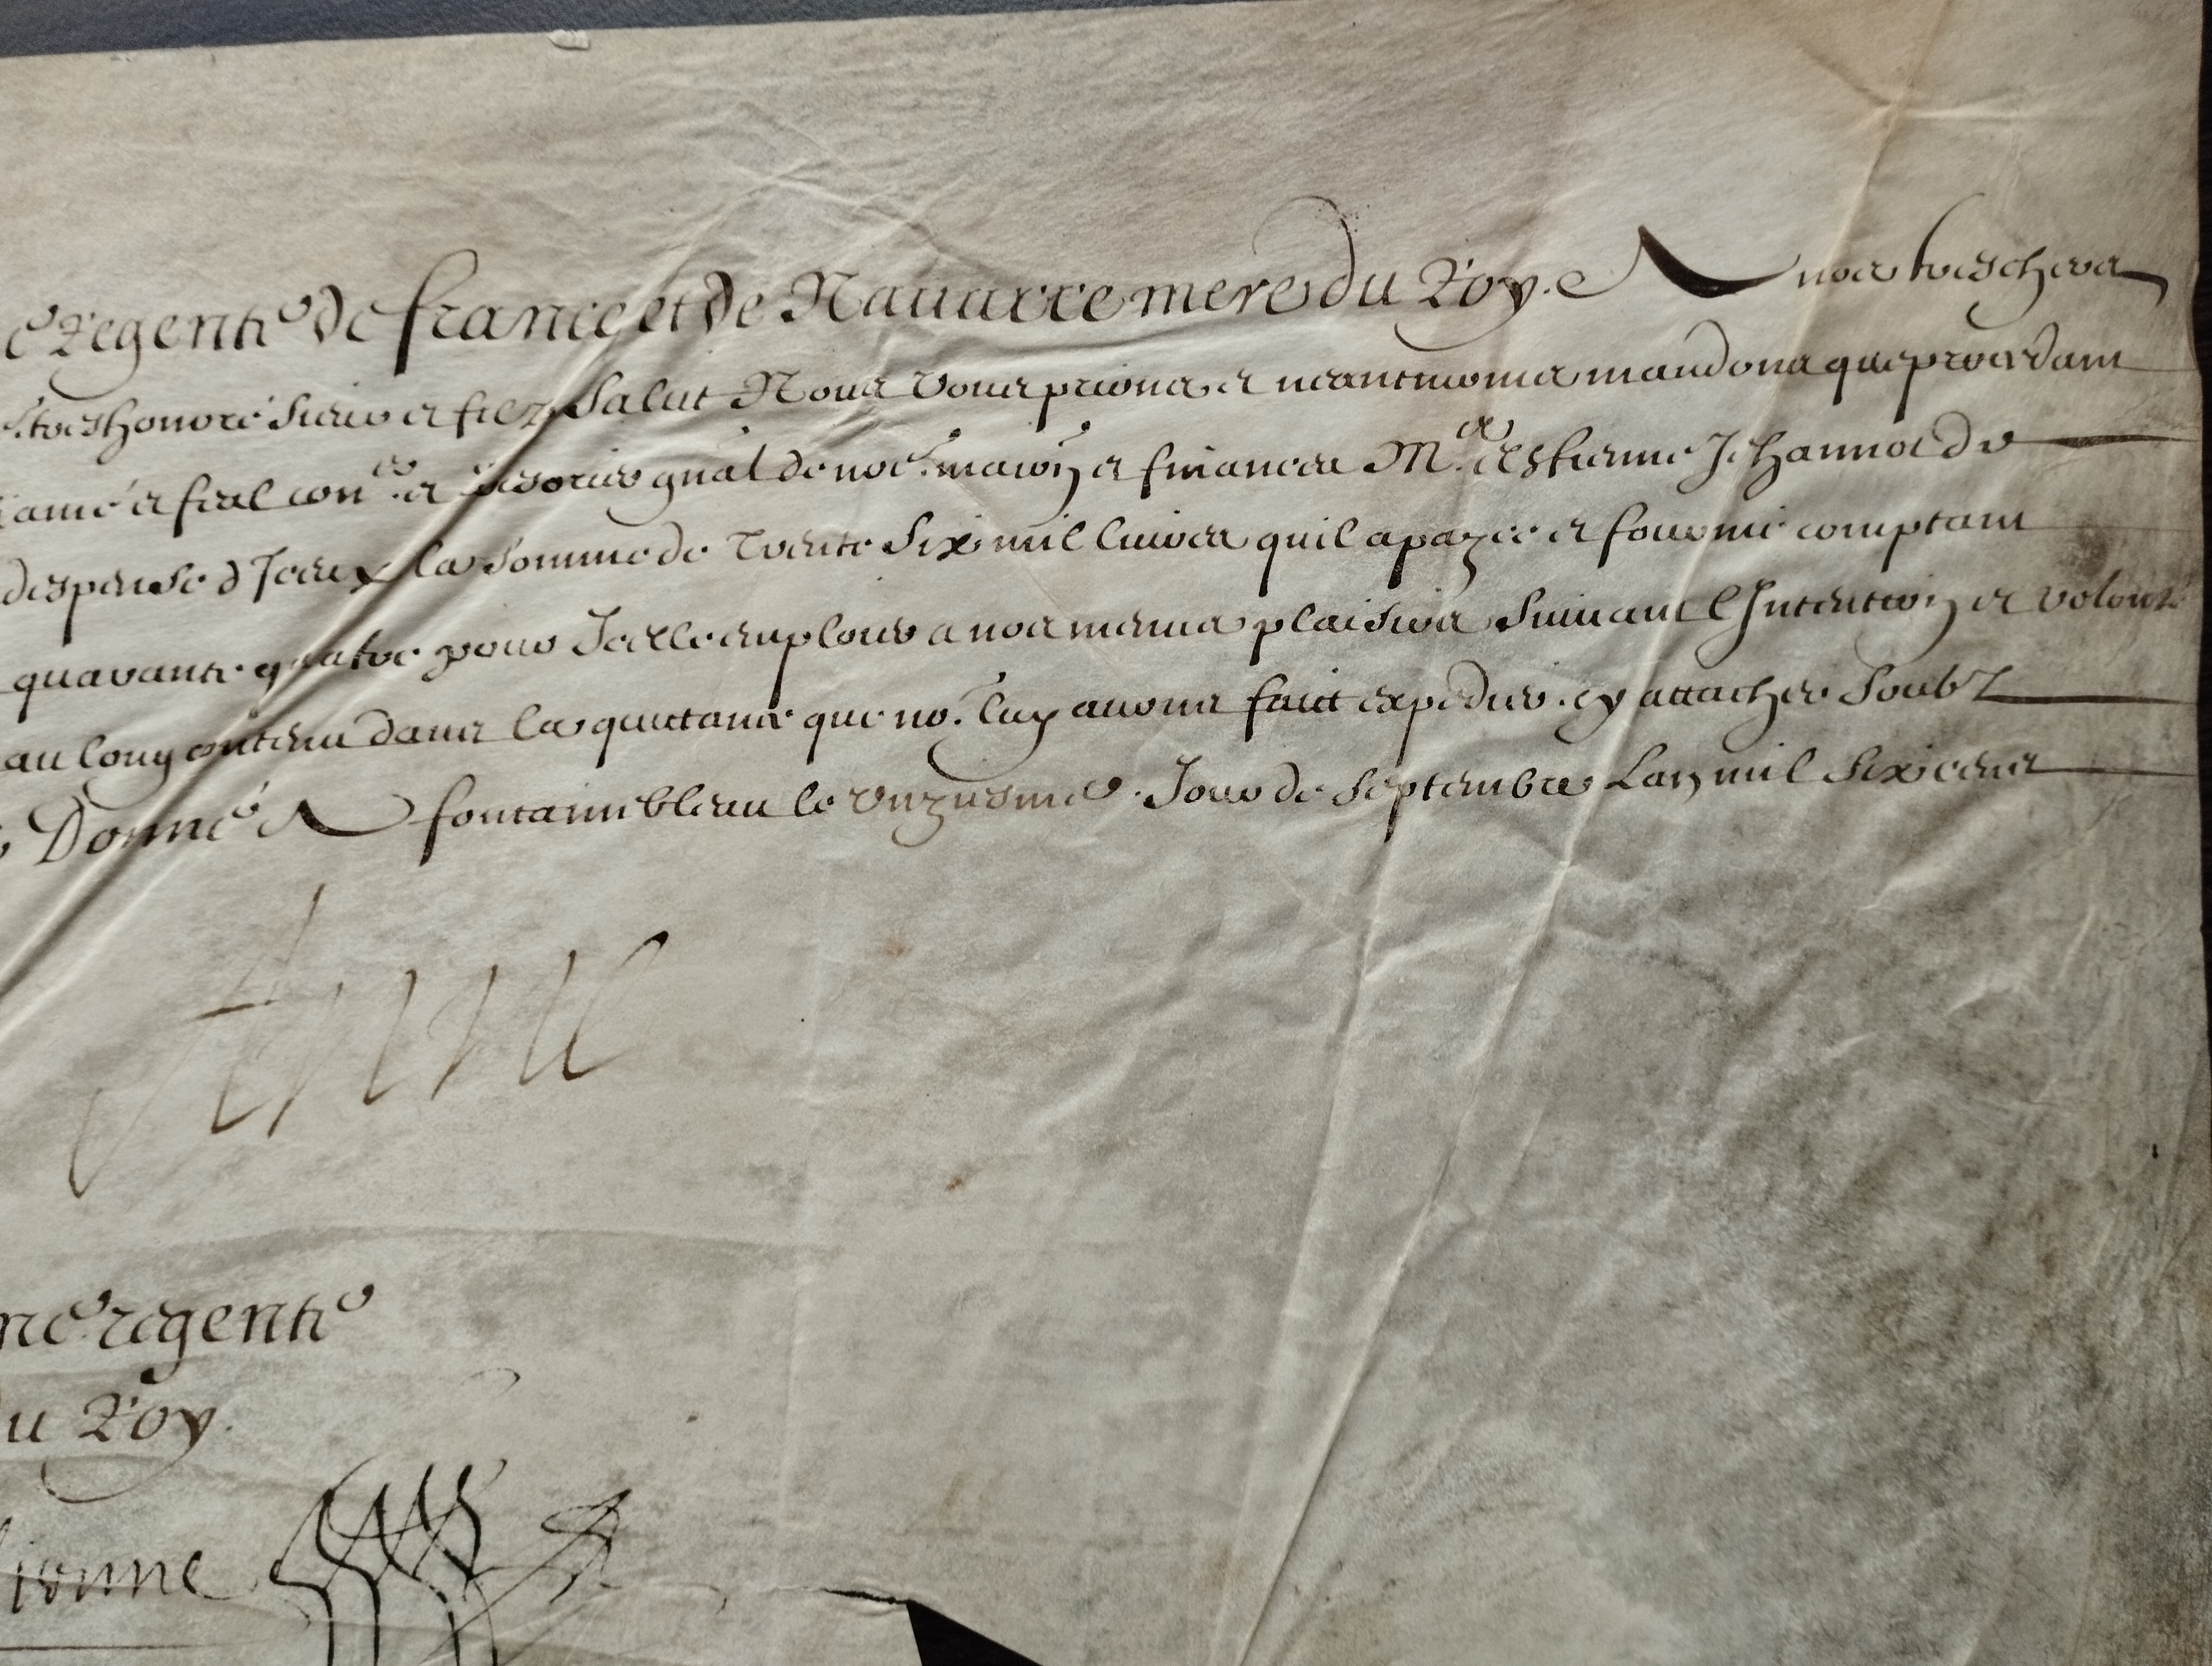 e Regente de france et de Navarre mere du Roy. A nos treschers
treshonoré Sieur et filz Salut Nous vous prions et neantmoins mandons que procedant
amé et feal con.er et Tresorier gnal de nos.e maison et finances M.e Estienne Jehannot de
despense d'Iceux la Somme de Trente Six mil livres quil a payée et fourni comptant
quarante quatre pour Icelle emploier a nos menus plaisirs Suivant l'Intention et volonté
au long contenu dans la quictance que no. luy avons faict expedier. cy attachee Soubz
Donné A fontainebleau le unziesme Jour de Septembre Lan mil Six cens
Anne
regente
du Roy.
Lionne